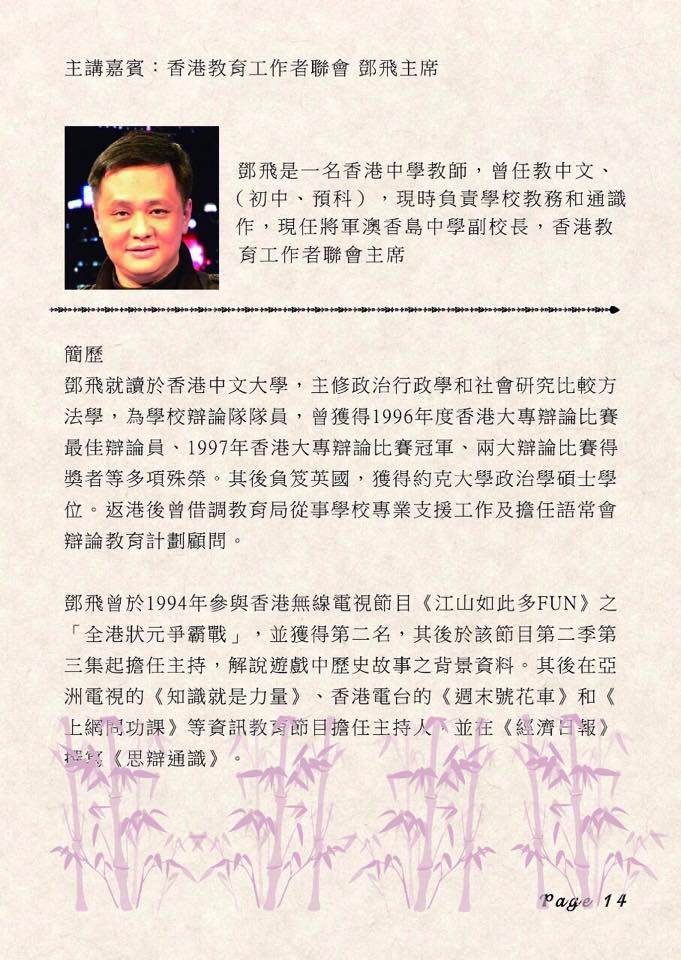 主講嘉賓：香港教育工作者聯會 鄧飛主席
鄧飛是一名香港中學教師，曾任教中文、
（初中、預科），現時負責學校教務和通識
作，現任將軍澳香島中學副校長，香港教
育工作者聯會主席
簡歷
鄧飛就讀於香港中文大學，主修政治行政學和社會研究比較方
法學，為學校辯論隊隊員，曾獲得1996年度香港大專辯論比賽
最佳辯論員、1997年香港大專辯論比賽冠軍、兩大辯論比賽得
獎者等多項殊榮。其後負笈英國，獲得約克大學政治學碩士學
位。返港後曾借調教育局從事學校專業支援工作及擔任語常會
辯論教育計劃顧問。
鄧飛曾於1994年參與香港無線電視節目《江山如此多FUN》之
「全港狀元爭霸戰」，並獲得第二名，其後於該節目第二季第
三集起擔任主持，解說遊戲中歷史故事之背景資料。其後在亞
洲電視的《知識就是力量》、香港電台的《週末號花車》和《
上網問功課》等資訊教育節目擔任主持人，並在《經濟日報》
撰寫《思辯通識》。
Page 14